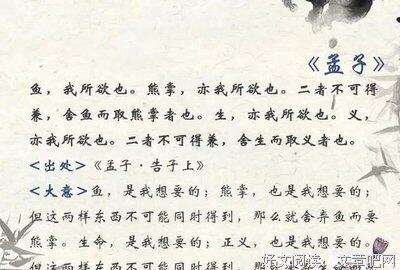 《孟子》
鱼，我所欲也。熊掌，亦我所欲也。二者不可得
兼，舍鱼而取熊掌者也。生，亦我所欲也。义，
亦我所欲也。二者不可得兼，舍生而取义者也。
<出处>《孟子·告子上》
<大意>鱼，是我想要的；熊掌，也是我想要的；
但这两样东西不可能同时得到，那么就舍弃鱼而要
熊掌。生命，是我想要的；正义，也是我想要的。
但这两样东西不可能同时得到
好文阅读，文章吧网